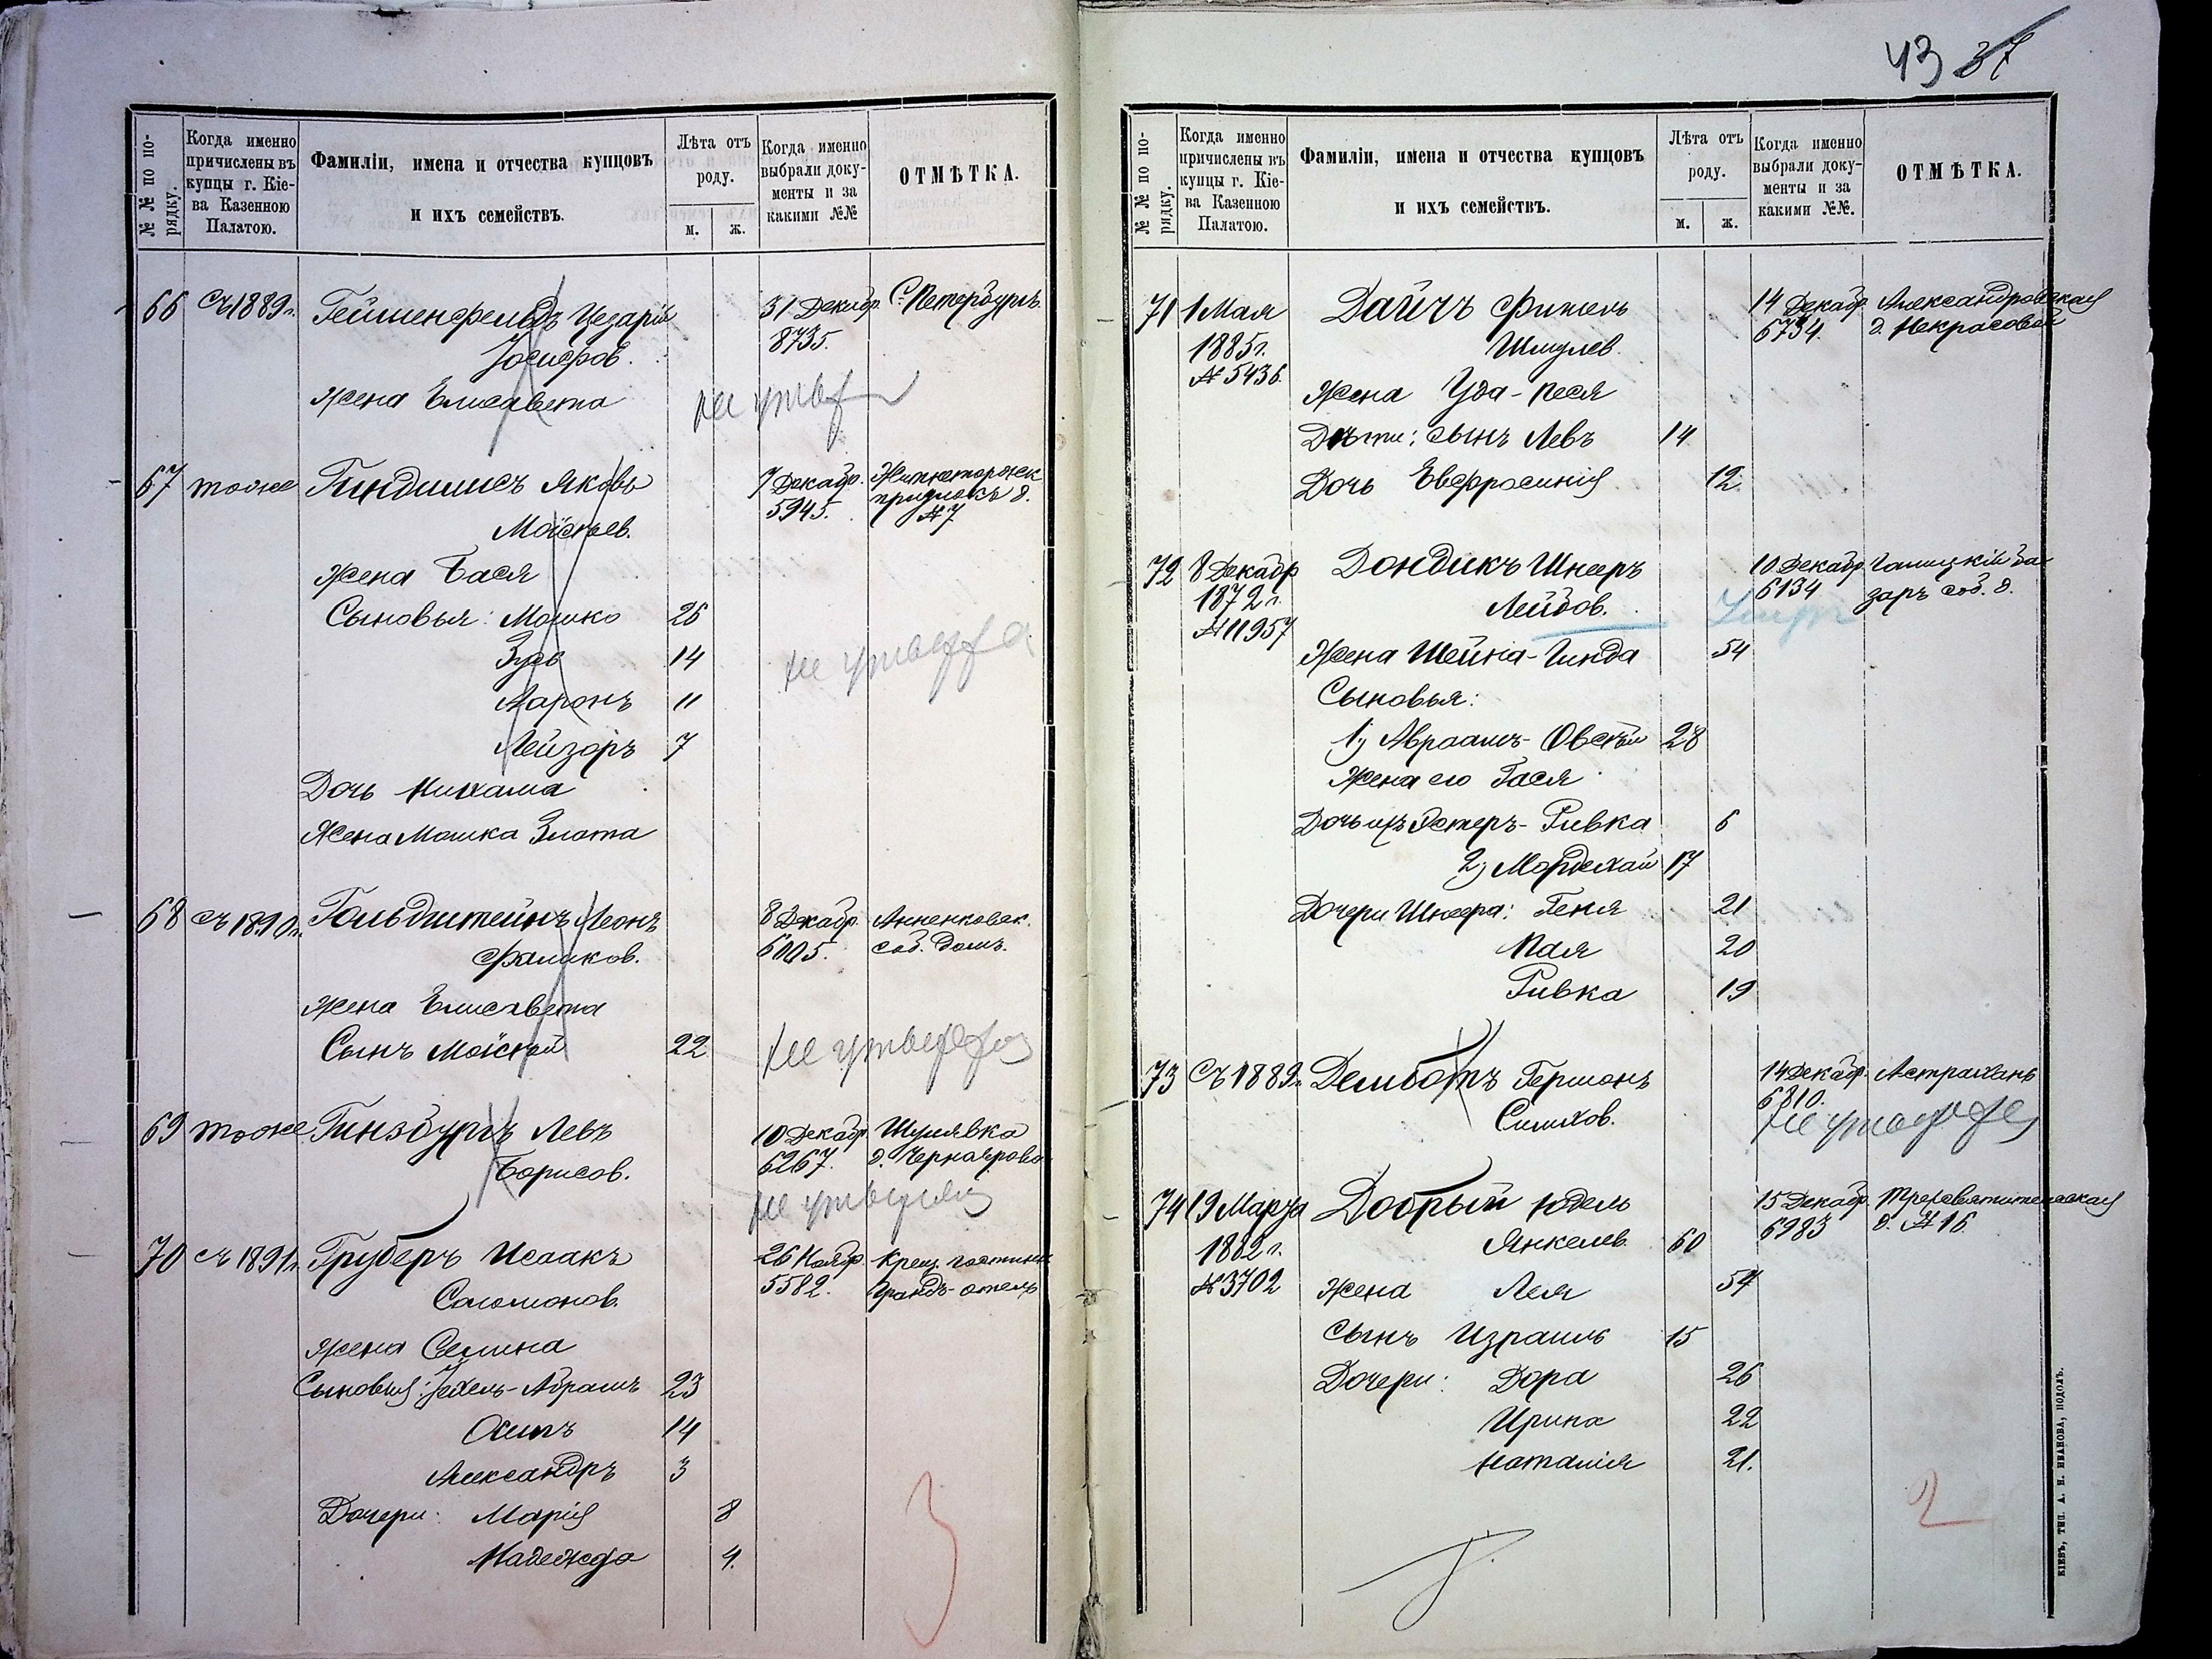 43 37
№ № по по-
рядку.
Когда именно
причислены въ
купцы г. Кіе-
ва Казенною
Палатою.
Фамиліи, имена и отчества купцовъ
и ихъ семействъ.
Лѣта отъ
роду.
м.
ж.
Когда именно
выбрали доку-
менты и за
какими №№
ОТМѢТКА.
66 Съ 1889 г. Гейшенфельдъ Цезарій 31 Декабр. С-Петербургъ
Іосифов. 8735.
Жена Елисавета
не утвер
67 тоже Гиндинсъ Яковъ 7 Декабр. Житнеторжск
Моісѣев. 5945. № 7
Жена Бася
Сыновья: Мошко 26
Зусь 14
не утвержд
Ааронъ 11
Лейзоръ 7
Дочь Нихама
Жена Мошка Злота
68 съ 1890 г. Гольдштейнъ Леонъ 8 Декабр. Анненковск.
Фаликов. 6005. соб. домъ.
Жена Елисавета
Сынъ Моісѣй 22
не утвержден
69 тоже Гинзбургъ Левъ 10 Декабр. Шулявка
Борисов. 6267. д. Чернаярово
не утвержден
70 съ 1891 г. Груберъ Исаакъ 26 Ноябр. Крещ. гостиниц
Соломонов. 5582. Грандъ-отель
Жена Селина
Сыновья: Іохель-Абрамъ 23
Осипъ 14
Александръ 3
Дочери: Марія 8
Надежда 4.
3
№ № по по-
рядку.
Когда именно
причислены въ
купцы г. Кіе-
ва Казенною
Палатою.
Фамиліи, имена и отчества купцовъ
и ихъ семействъ.
Лѣта отъ
роду.
м.
ж.
Когда именно
выбрали доку-
менты и за
какими №№.
ОТМѢТКА.
71 1 Мая Дайчъ Фишель 14 Декабр. Александровская
1885 г. Шмулев. 6734. д. Некрасовой
№ 5436.
Жена Уда-Песя
Дѣти: сынъ Левъ 14
Дочь Евфросинія 12.
72 8 Декабр Дондикъ Шнееръ 10 Декабр. Галицкій ба-
1872 г. Лейбов. 6134 заръ соб. д.
№ 11957
Жена Шейна-Гинда 54
Сыновья:
1) Авраамъ-Овсѣй 28
Жена его Гася
Дочь ихъ Эстеръ-Ривка 6
2) Мордехай 17
Дочери Шнеера: Геня 21
Пая 20
Ривка 19
73 Съ 1889 г. Демботъ Германъ 14 Декабр. Астрахань
Симхов. 6810.
не утвержден
74 19 Марта Добрый Юдель 15 Декабр. Трехсвятительская
1882 г. Янкелев. 60 6983 д. № 16
№ 3702 Жена Лея 54
Сынъ Израиль 15
Дочери: Дора 26
Ирина 22
Наталія 21.
2
КІЕВЪ, ТИП. А. Н. ИВАНОВА, ПОДОЛЪ.